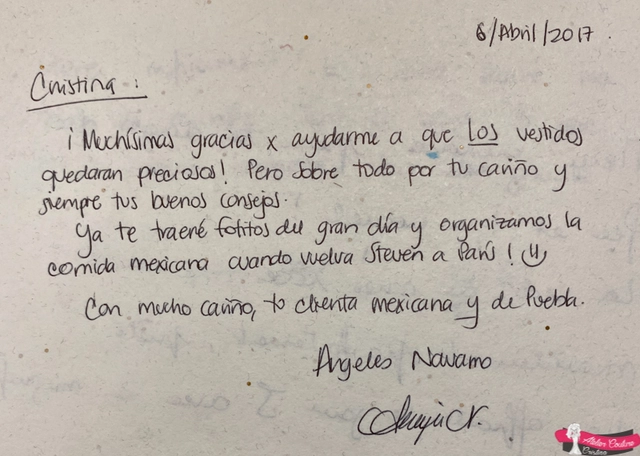 6/Abril/2017.
Cristina:
¡Muchísimas gracias x ayudarme a que los vestidos
quedaran preciosos! Pero sobre todo por tu cariño y
siempre tus buenos consejos.
Ya te traeré fotitos del gran día y organizamos la
comida mexicana cuando vuelva Steven a París! :)
Con mucho cariño, tu clienta mexicana y de Puebla.
Angeles Navarro
Atelier Couture
Cristina